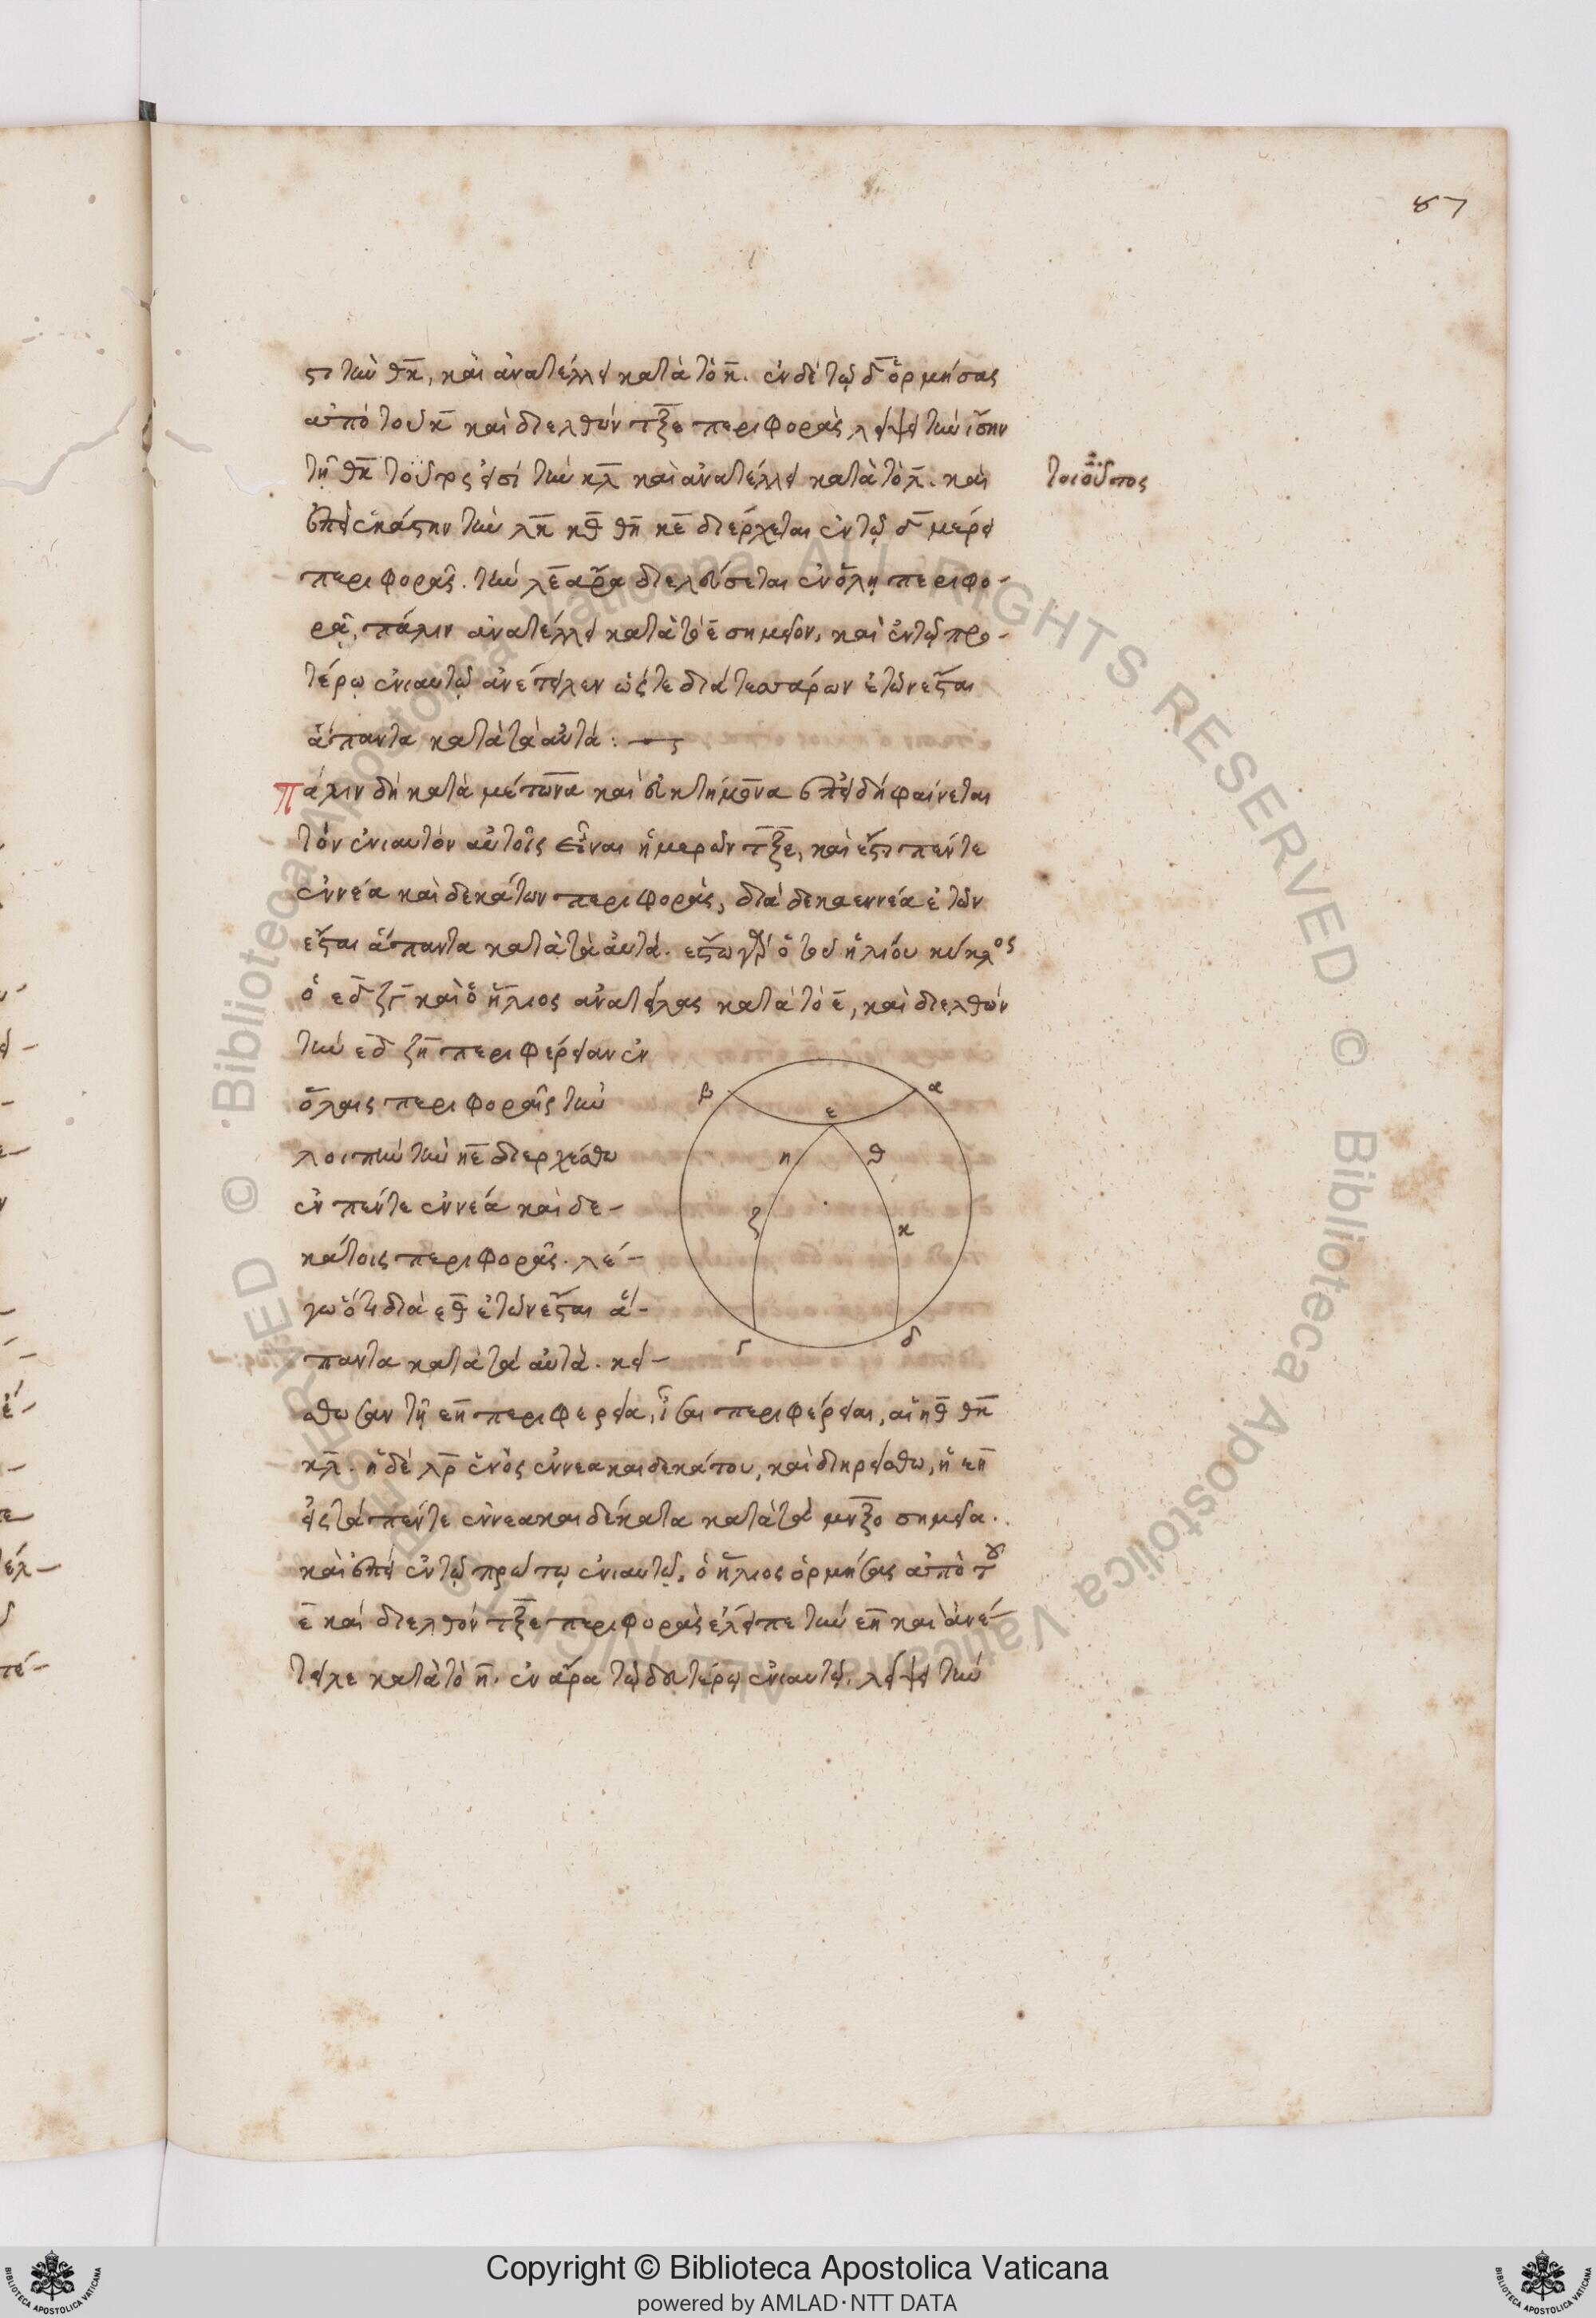 87
ϛι τὴν θκ̅, καὶ ἀνατέλλει κατὰ τὸ κ̅. ἐν δὲ τῷ δ̅ ὁρμήσας
ἀπὸ τοῦ κ̅ καὶ διελθὼν τξε̅ περιφορὰς λείψει τὴν ἴσην
τῇ θκ̅ τὴν κλ̅ καὶ ἀνατέλλει κατὰ τὸ λ̅. καὶ
ἐπεὶ ἑκάστην τὴν λκ̅ κθ̅ θη̅ ηε̅ διέρχεται ἐν τῷ δ̅ μέρει
περιφορᾶς. τὴν λε̅ ἄρα διελεύσεται ἐν ὅλῃ περιφο-
ρᾷ, πάλιν ἀνατέλλει κατὰ τὸ ε̅ σημεῖον, καὶ ἐν τῷ προ-
τέρῳ ἐνιαυτῷ ἀνέτειλεν ὥστε διὰ τεσσάρων ἐτῶν ἔσται
ἅπαντα κατὰ τὰ αὐτά :
Πάλιν δὴ κατὰ μέτωνα καὶ εὐκτήμονα ἐπειδὴ φαίνεται
τὸν ἐνιαυτὸν αὐτοῖς εἶναι ἡμερῶν τξε̅, καὶ ἔστι πέντε
ἐννέα καὶ δεκάτων περιφορᾶς, διὰ δεκαεννέα ἐτῶν
ἔσται ἅπαντα κατὰ τὰ αὐτά. ἔστω γὰρ ὁ τοῦ ἡλίου κύκλος
ὁ εδ̅ ζγ̅ καὶ ὁ ἥλιος ἀνατείλας κατὰ τὸ ε̅, καὶ διελθὼν
τὴν εδ̅ ζη̅ περιφέρειαν ἐν
ὅλαις περιφοραῖς τὴν
λοιπὴν τὴν ηε̅ διερχέσθω
ἐν πέντε ἐννέα καὶ δε-
κάτοις περιφορᾶς. λέ-
γω ὅτι διὰ ιθ̅ ἐτῶν ἔσται ἅ-
παντα κατὰ τὰ αὐτά. κεί-
σθωσαν τῇ εη̅ περιφερεία, ἴσαι περιφέρειαι, αἱ ηθ̅ θκ̅
κλ̅. ἡ δὲ λρ̅ ἑνὸς ἐννεακαιδεκάτου, καὶ διηρείσθω, ἡ εη̅
εἰς τὰ πέντε ἐννεακαιδέκατα κατὰ τὰ μνξο̅ σημεῖα.
καὶ ἐπεὶ ἐν τῷ πρώτῳ ἐνιαυτῷ, ὁ ἥλιος ὁρμήσας ἀπὸ τοῦ
ε̅ καὶ διελθὸν τξε̅ περιφορὰς ἔλειπε τὴν εη̅ καὶ ἀνέ-
τειλε κατὰ τὸ η̅. ἐν ἄρα τῷ δευτέρῳ ἐνιαυτῷ, λείψει τὴν
β
α
ε
η
θ
ζ
κ
γ
δ
Copyright © Biblioteca Apostolica Vaticana
powered by AMLAD·NTT DATA